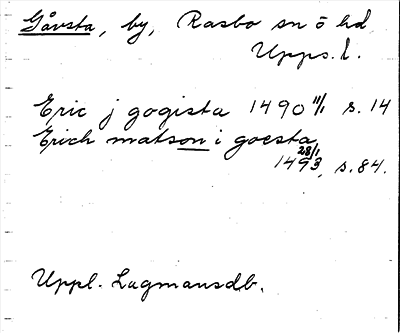 Gåvsta, by, Rasbo sn ö hd
Upps. l.
Eric j gogista 1490 11/1 s. 14
Erich matson i goesta
28/1
1493, s. 84.
Uppl. Lagmansdb.